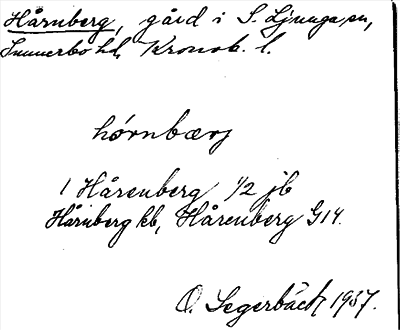 Hårnberg, gård i S. Ljunga sn,
Sunnerbo hd, Kronob. l.
hórnbærj
1 Hårenberg 1/2 jb
Hårnberg kb, Hårenberg G14.
O. Segerbäck 1937.